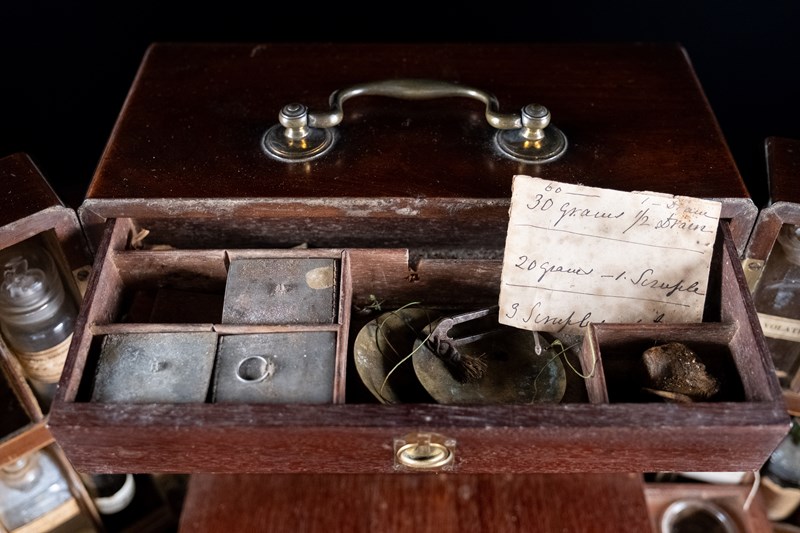 60 —— 1 – Dram
30 Grains 1/2 Dram
20 grains – 1 Scruple
3 Scruples
VOLATI